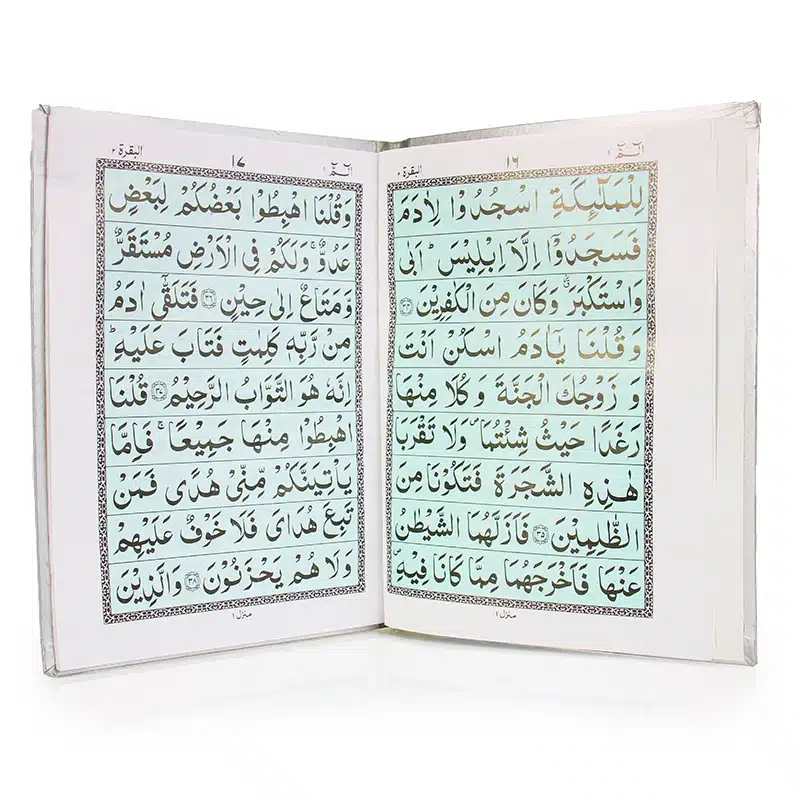 الٓمّٓ ١
١٦
البقرة ٢
لِلْمَلٰٓئِكَةِ اسْجُدُوْا لِاٰدَمَ
فَسَجَدُوْٓا اِلَّآ اِبْلِيْسَ ؕ اَبٰى
وَاسْتَكْبَرَ ۫ وَكَانَ مِنَ الْكٰفِرِيْنَ ﴿۳۴﴾
وَقُلْنَا يٰٓاٰدَمُ اسْكُنْ اَنْتَ
وَ زَوْجُكَ الْجَنَّةَ وَكُلَا مِنْهَا
رَغَدًا حَيْثُ شِئْتُمَا ۪ وَلَا تَقْرَبَا
هٰذِهِ الشَّجَرَةَ فَتَكُوْنَا مِنَ
الظّٰلِمِيْنَ ﴿۳۵﴾ فَاَزَلَّهُمَا الشَّيْطٰنُ
عَنْهَا فَاَخْرَجَهُمَا مِمَّا كَانَا فِيْهِ ۪
منزل ١
الٓمّٓ ١
١٧
البقرة ٢
وَقُلْنَا اهْبِطُوْا بَعْضُكُمْ لِبَعْضٍ
عَدُوٌّ ۚ وَلَكُمْ فِى الْاَرْضِ مُسْتَقَرٌّ
وَّمَتَاعٌ اِلٰى حِيْنٍ ﴿۳۶﴾ فَتَلَقّٰٓى اٰدَمُ
مِنْ رَّبِّهٖ كَلِمٰتٍ فَتَابَ عَلَيْهِ ؕ
اِنَّهٗ هُوَ التَّوَّابُ الرَّحِيْمُ ﴿۳۷﴾ قُلْنَا
اهْبِطُوْا مِنْهَا جَمِيْعًا ۚ فَاِمَّا
يَاْتِيَنَّكُمْ مِّنِّىْ هُدًى فَمَنْ
تَبِعَ هُدَاىَ فَلَا خَوْفٌ عَلَيْهِمْ
وَلَا هُمْ يَحْزَنُوْنَ ﴿۳۸﴾ وَالَّذِيْنَ
منزل ١